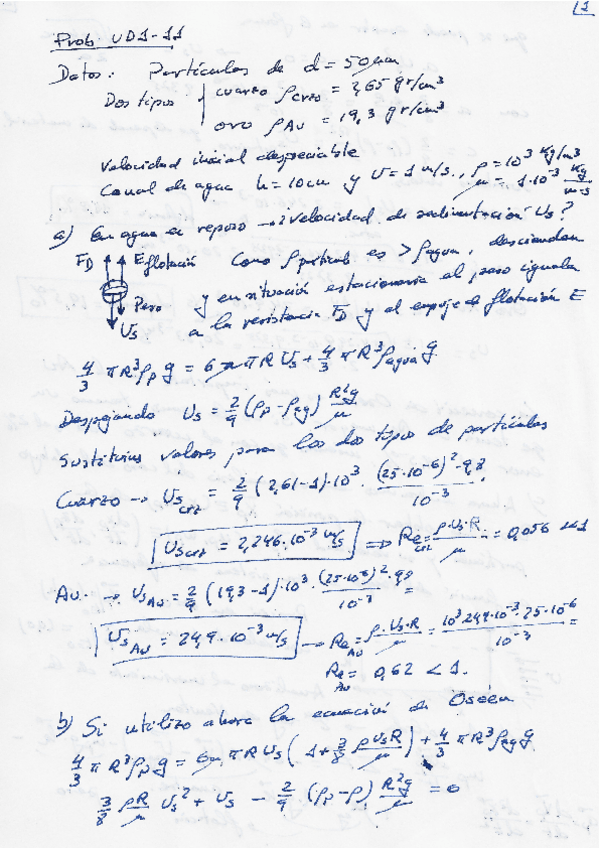 1
Prob. UD1-11
Datos: Partículas de d = 50 µm
Dos tipos { cuarzo ρcrzo = 2,65 gr/cm³
oro ρAu = 19,3 gr/cm³
Velocidad inicial despreciable
Canal de agua h = 10 cm y U = 1 m/s., ρ = 10³ Kg/m³
μ = 1·10⁻³ Kg/m·s
a) En agua en reposo → ¿Velocidad de sedimentación Us?
FD E flotación Como ρpartícul es > ρagua, descienden
Peso y en situación estacionaria el peso iguala
Us a la resistencia FD y al empuje de flotación E
4/3 πR³ρp g = 6μπR Us + 4/3 πR³ρagua g
Despejando Us = 2/9 (ρp - ρag) R²g/μ
Sustituimos valores para los dos tipos de partículas
Cuarzo → Uscrz = 2/9 (2,61-1)·10³ · (25·10⁻⁶)²·9,8/10⁻³
Uscrz = 2,246·10⁻³ m/s ⇒ Recrz = ρ·Us·R/μ = 0,056 < 1
Au → UsAu = 2/9 (19,3-1)·10³·(25·10⁻⁶)²·9,8/10⁻³ =
UsAu = 24,9·10⁻³ m/s → ReAu = ρ·Us·R/μ = 10³·24,9·10⁻³·25·10⁻⁶/10⁻³ =
ReAu = 0,62 < 1.
b) Si utilizo ahora la ecuación de Oseen
4/3 πR³ρp g = 6μπRUs (1 + 3/8 ρUsR/μ) + 4/3 πR³ρag g
3/8 ρR/μ Us² + Us - 2/9 (ρp - ρ) R²g/μ = 0